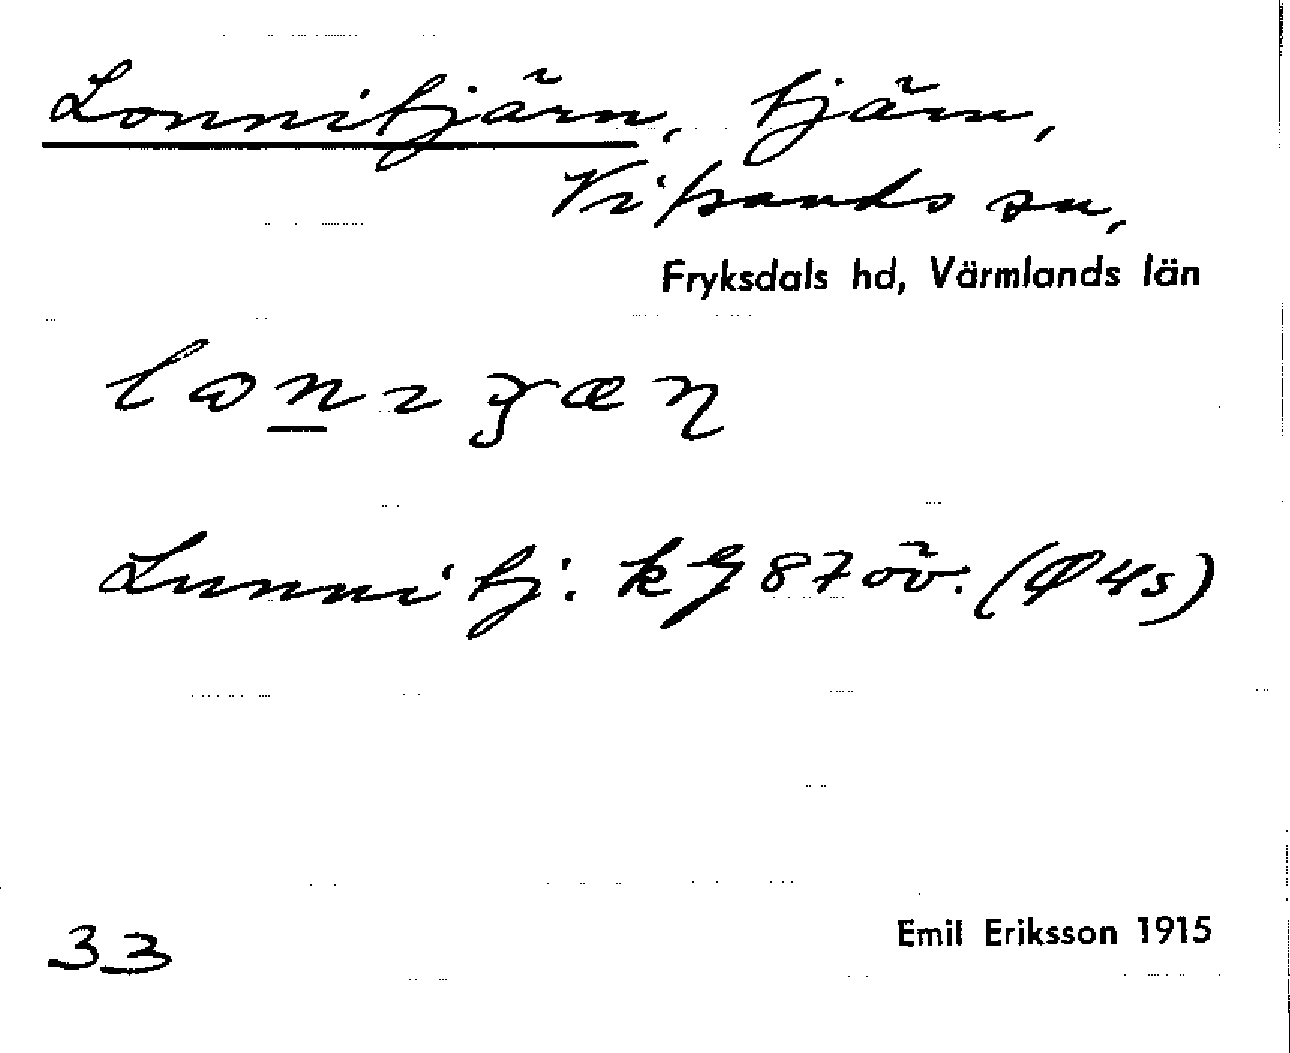 Lonnitjärn, tjärn,
Vitsands sn,
Fryksdals hd, Värmlands län
Lunnitj: kg 87 öv. (Φ 4s)
33
Emil Eriksson 1915